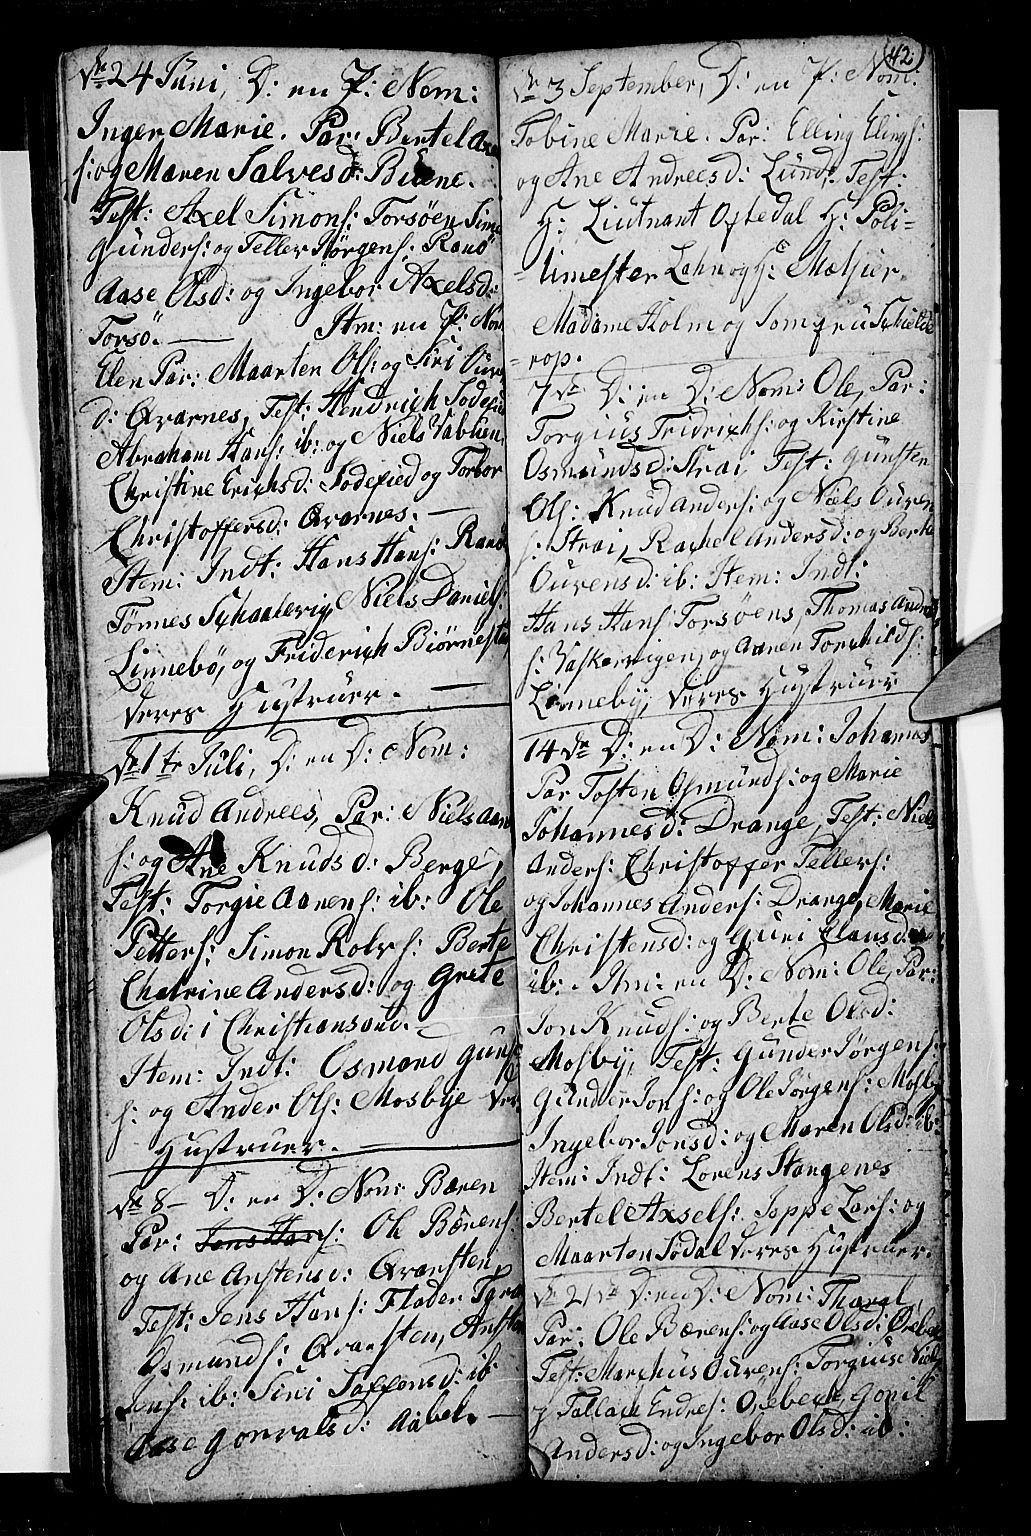 dn 24 Juni, D: en P: Nom:
Inger Marie. Par: Bertel Axe
s: og Maren Salvesd: Buene.
Test: Axel Simons: Torsöen Sim
Gunders: og Teller Jörgens: Ranö
Aase Olsd: og Ingebor Axelsd:
Torsö. — Itm: en P: Nom
Elen Par: Maarten Ols: og Siri Ours
d: Qvarnes, Test: Hendrich Södefied
Abraham Hans: ib: og Niels Vabuen,
Christine Erichsd: Södefied og Torbor
Christoffersd: Qvarnes. —
Item: Indt: Hans Hans: Ranö
Tönnes Schaaleviig, Niels Daniels:
Linnebö, og Friderich Biörnestad
deres Hustruer. —
dn 1te Juli, D: en D: Nom:
Knud Andrees, Par: Niels Aan
s: og Ane Knudsd: Berge,
Test: Torgie Aanens: ib: Ole
Petters: Simon Rolvs: Berte
Chatrine Andersd: og Grete
Olsd: i Christiansand. —
Item: Indt: Osmond Guns
s: og Ander Ols: Mosbye der
Hustruer. —
dn 8 — D: en D: Nom: Bæren
Par: Jens Hans: Ole Börens:
og Ane Anstensd: Qvarsten,
Test: Jens Hans: Flader
Osmunds: Qvarsten, Ansten
Jens: ib: Siri Saffensd: ib
Aase Gonvalsd: Aabel. —
(42)
dn 3 September, D: en P: Nom:
Tobine Marie. Par: Elling Elings:
og Ane Andreesd: Lund, Test:
H: Liutnant Oftedal H: Poli=
=timester Lahn og H: Mæsier,
Madame Holm og Jomfru Schelde
=rop.
7de D: en D: Nom: Ole, Par:
Torgius Fridrichs: og Kirstine
Osmundsd: Strai, Test: Gunsten
Ols: Knud Anders: og Niels Ouren
s: Strai, Rachel Andersd: og Berte
Ourensd: ib: Item: Indt:
Hans Hans Torsöens, Thomas Andre
s: Vaskervigen, og Aanen Torchilds:
Linneby, deres Hustruer
14de D: en D: Nom: Johannes
Par Tosten Osmunds: og Marie
Johannesd: Drange, Test: Niels
Anders: Christoffer Tellers:
og Johannes Anders: Drange, Marie
Christensd: og Guri Clausd:
ib: - Itm: en D: Nom: Ole, Par:
Jon Knuds: og Berte Olsd:
Mosby, Test: Gunder Jörgens:
Gunder Jons: og Ole Jörgens: Mosby
Ingebor Jonsd: og Maren Olsd: ib:
Item: Indt: Lorens Stangenes
Bertel Axsels: Jeppe Lars: og
Maarten Södal deres Hustruer.
dn 21de D: en D: Nom: Tharal,
Par: Ole Bærens: og Aase Olsd: Örebek
Test: Marchus Ourens: Torgiuse Niels
s Tallack Endres: Örebek, Gonil
Andersd: og Ingebor Olsd: ib: